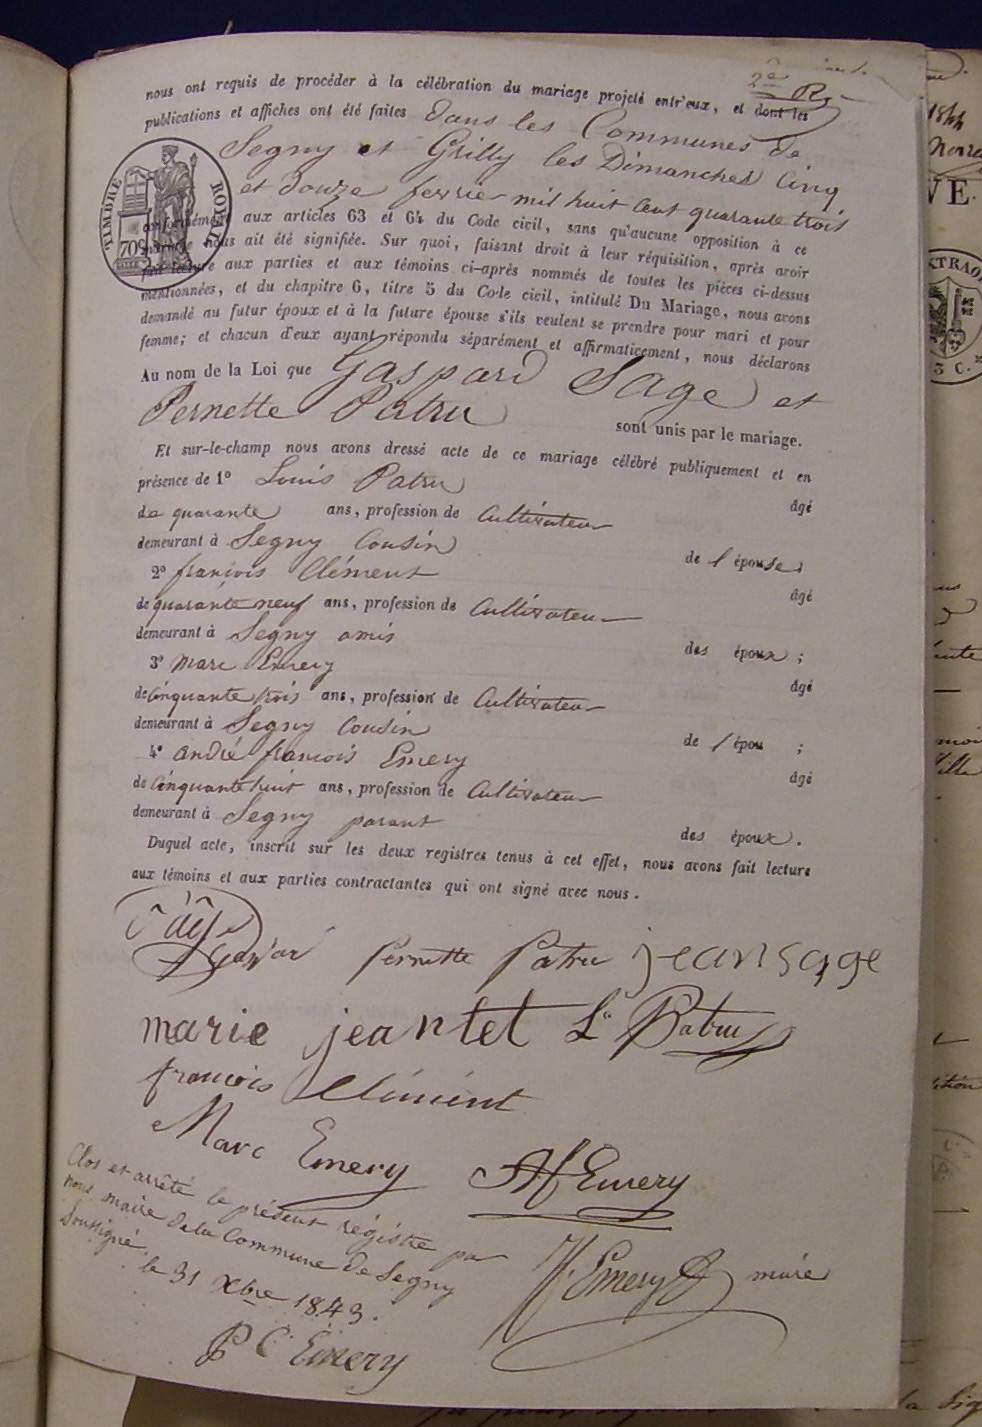 2e Rg
nous ont requis de procéder à la célébration du mariage projeté entr'eux, et dont les
publications et affiches ont été faites dans les Communes de
Segny et Grilly les Dimanches Cinq
et douze fevrier mil huit Cent quarante trois
TIMBRE ROYAL
70c
conformément aux articles 63 et 64 du Code civil, sans qu'aucune opposition à ce
mariage nous ait été signifiée. Sur quoi, faisant droit à leur réquisition, après avoir
fait lecture aux parties et aux témoins ci-après nommés de toutes les pièces ci-dessus
mentionnées, et du chapitre 6, titre 5 du Code civil, intitulé Du Mariage, nous avons
demandé au futur époux et à la future épouse s'ils veulent se prendre pour mari et pour
femme; et chacun d'eux ayant répondu séparément et affirmativement, nous déclarons
Au nom de la Loi que Gaspard Sage et
Pernette Patru sont unis par le mariage.
Et sur-le-champ nous avons dressé acte de ce mariage célébré publiquement et en
présence de 1o Louis Patru âgé
de quarante ans, profession de Cultivateur
demeurant à Segny Cousin de l'épouse
2o françois Clément âgé
de quarante neuf ans, profession de Cultivateur
demeurant à Segny amis des époux;
3o Marc Emery âgé
de Cinquante trois ans, profession de Cultivateur
demeurant à Segny Cousin de l'épou ;
4o andré françois Emery âgé
de Cinquante huit ans, profession de Cultivateur
demeurant à Segny parant des époux.
Duquel acte, inscrit sur les deux registres tenus à cet effet, nous avons fait lecture
aux témoins et aux parties contractantes qui ont signé avec nous.
Sage Gaspar Pernette Patru jean sage
marie jeantet Ls Patru
françois Clément
Marc Emery AfEmery
Clos et arrêté le présent régistre par
nous maire de la Commune de Segny
Soussigné.
le 31 Xbre 1843.
Emery maire
P C Emery